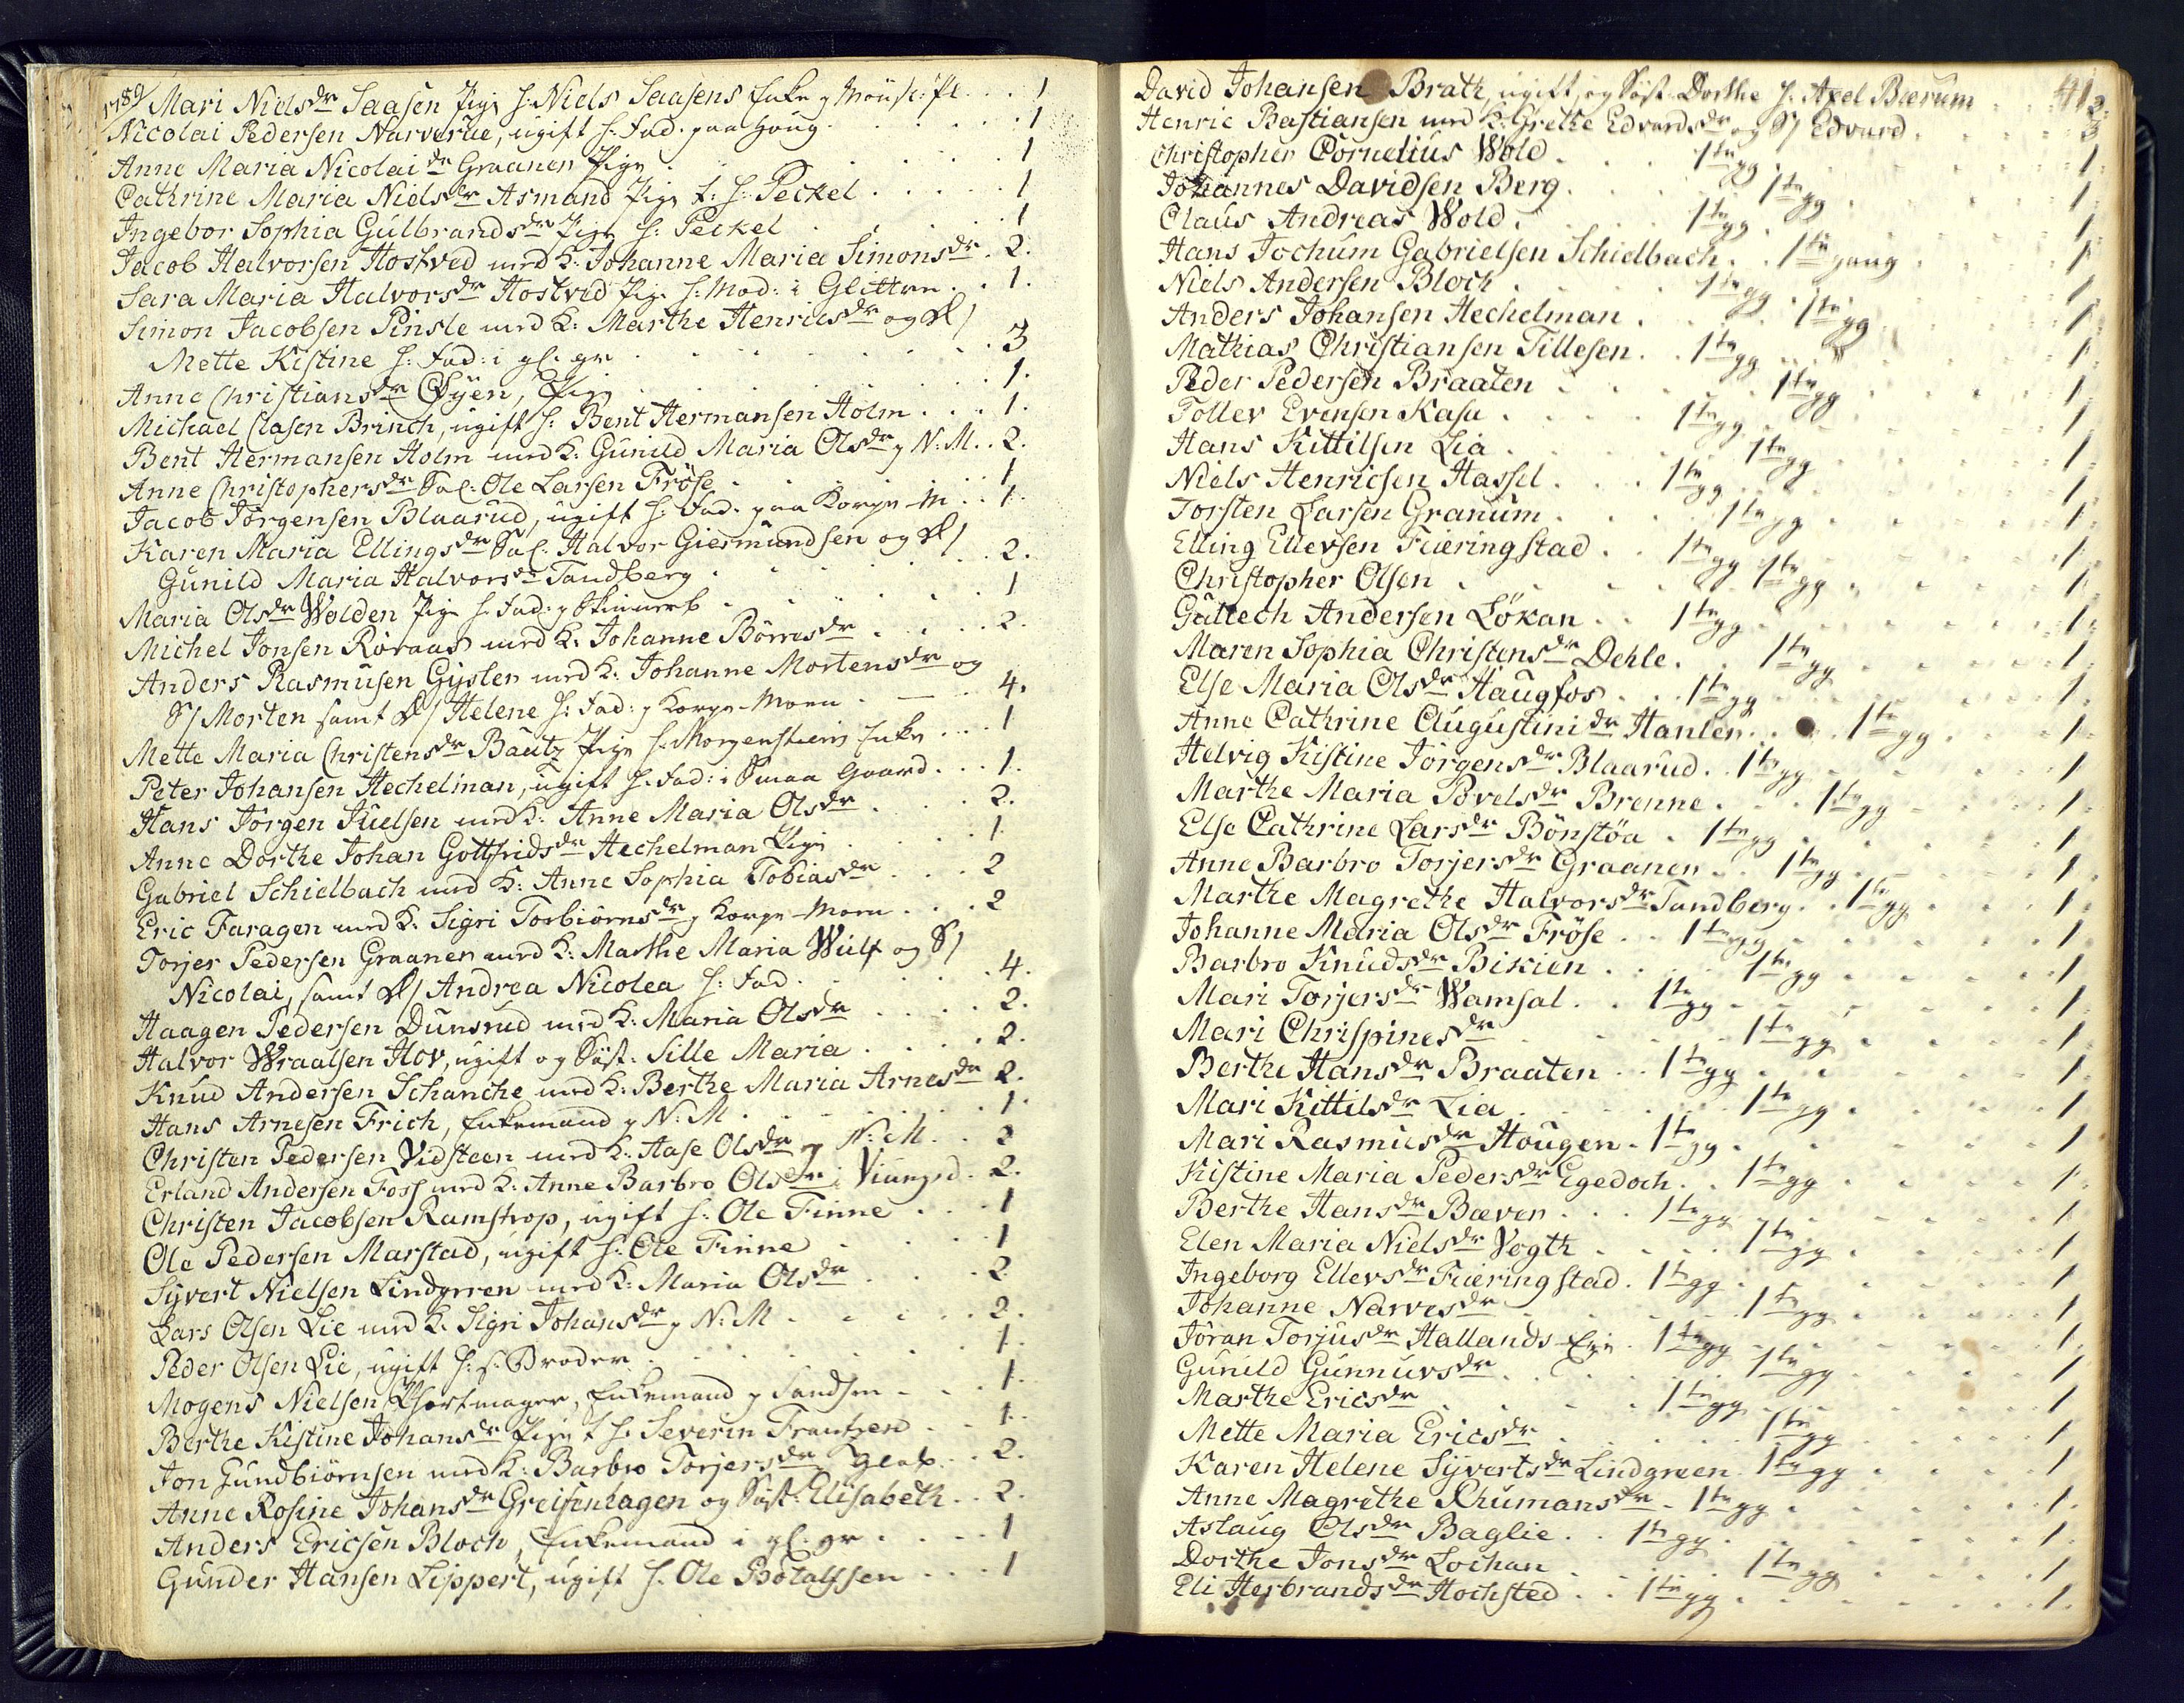 1789/ Mari Nielsdr Saasen Pige h: Niels Saasens Enke p Mönst: pl . . . 1
Nicolai Pedersen Narverue, ugift h: Fad. paa Houg . . . 1
Anne Maria Nicolaidr Graanen Pige . . . 1
Cathrine Maria Nielsdr Asmand Pige t: h: Peckel . . . 1
Ingebor Sophia Gulbrandsdr Pige h: Peckel . . . 1
Jacob Halvorsen Hostved med K: Johanne Maria Simonsdr . 2.
Sara Maria Halvorsdr Hostvid Pige h: Mod: i Glittre . . 1.
Simon Jacobsen Pinsle med K: Marthe Henricsdr og D/
Mette Kistine h: Fad: i gl. gr . . . 3
Anne Christiansdr Öyen, Pige . . . 1.
Michael Clasen Brinch, ugift h: Bent Hermansen Holm . . . 1.
Bent Hermansen Holm med K: Gunild Maria Olsdr p N: M. . 2.
Anne Christophersdr Sal: Ole Larsen Fröse . . . 1
Jacob Jörgensen Blaarud, ugift h: Fad. paa Korpe-M . . 1.
Karen Maria Ellingsdr Sal: Halvor Giermundsen og D/
Gunild Maria Halvorsdr Tandberg . . . 2.
Maria Olsdr Wolden Pige h: Fad: p . . . 1
Michel Jonsen Röraas med K: Johanne Börresdr . . . 2.
Anders Rasmusen Gyslen med K: Johanne Mortensdr og
S/ Morten samt D/ Helene h: Fad: p Korpe-Moen . . . 4.
Mette Maria Christensdr Bautz Pige h: Morgenstierns Enke . . . 1
Peter Johansen Hechelman, ugift h: Fad: i Smaa Gaard . . . 1.
Hans Jörgen Juelsen med K: Anne Maria Olsdr . . . 2.
Anne Dorthe Johan Gottfridsdr Hechelman Pige . . . 1.
Gabriel Schielbach med K: Anne Sophia Tobiasdr . . . 2
Eric Faragen med K: Sigri Torbiörnsdr p Korpe-Moen . . . 2
Torjer Pedersen Graanen med K: Marthe Maria Wulf og S/
Nicolai, samt D/ Andrea Nicolea h: Fad . . . 4.
Haagen Pedersen Dunsrud med K: Maria Olsdr . . . 2.
Halvor Wraalsen Hov, ugift og Söst: Sille Maria . . . 2.
Knud Andersen Schanche med K: Berthe Maria Arnesdr 2.
Hans Arnesen Frich, Enkemand p N: M . . . 1.
Christen Pedersen Vidsteen med K: Aase Olsdr p N: M . . 2
Erland Andersen Foss med K: Anne Barbro Olsdr i . 2.
Christen Jacobsen Ramstrop, ugift h: Ole Finne . . . 1
Ole Pedersen Marstad, ugift h: Ole Finne . . . 1
Syvert Nielsen Lindgreen med K: Maria Olsdr . . . 2.
Lars Olsen Lie med K. Sigri Johansdr p N: M . . . 2.
Peder Olsen Lie, ugift h: s: Broder . . . 1.
Mogens Nielsen , Enkemand p . . . 1.
Berthe Kistine Johansdr Pige t h: Severin Frantzen . . 1.
Jon Gundbiörnsen med K: Barbro Torjersdr . . 2.
Anne Rosine Johansdr Greifenhagen og Söst: Elisabeth . . 2.
Anders Ericsen Bloch, Enkemand i gl. gr . . . 1
Gunder Hansen Lippert, ugift h. Ole Botolfsen . . . 1
41
David Johansen Brath, ugift, og Söst. Dorthe h: Axel Bærum . . 2.
Henric Bastiansen med K: Grethe Edvardsdr og S/ Edvard . . . 3
Christopher Cornelius Wold . . . 1te gg . . . 1.
Johannes Davidsen Berg . . . 1te gg . . . 1.
Claus Andreas Wold . . . 1te gg . . . 1.
Hans Jochum Gabrielsen Schielbach . . 1te gang . . . 1.
Niels Andersen Bloch . . . 1te gg . . . 1
Anders Johansen Hechelman . . . 1te gg . . . 1.
Mathias Christiansen Tillesen . . 1te gg . . . 1.
Peder Pedersen Braaten . . . 1te gg . . . 1
Tollev Evensen Kasa . . . 1te gg . . . 1.
Hans Kittilsen Lia . . . 1te gg . . . 1.
Niels Henricsen Hassel . . . 1te gg . . . 1.
Torsten Larsen Granum . . . 1te gg . . . 1.
Elling Ellevsen Fieringstad . . 1te gg . . . 1.
Christopher Olsen . . . 1te gg . . . 1.
Guttech Andersen Lökan . . 1te gg . . . 1.
Maren Sophia Christensdr Dehle . . 1te gg . . . 1.
Else Maria Olsdr Haugfos . . 1te gg . . . 1.
Anne Cathrine Augustinidr Hanlen . . . 1te gg . . . 1.
Helvig Kistine Jörgensdr Blaarud . . 1te gg . . . 1.
Marthe Maria Povelsdr Brenne . . . 1te gg . . . 1.
Else Cathrine Larsdr Bönstöa . 1te gg . . . 1.
Anne Barbro Torjersdr Graanen . . 1te gg . . . 1.
Marthe Magrethe Halvorsdr Tandberg . . 1te gg . . . 1.
Johanne Maria Olsdr Fröse . . 1te gg . . . 1
Barbro Knudsdr Bikien . . . 1te gg . . . 1
Mari Torjersdr Wamsal . . 1te gg . . . 1.
Mari Chrispinesdr . . . 1te gg . . . 1.
Berthe Hansdr Braaten . . 1te gg . . . 1.
Mari Kittilsdr Lia . . . 1te gg . . . 1
Mari Rasmusdr Hougen . 1te gg . . . 1
Kistine Maria Pedersdr Egedoch . . 1te gg . . . 1.
Berthe Hansdr Bæver . . . 1te gg . . . 1.
Elen Maria Nielsdr Vogth . . . 1te gg . . . 1
Ingeborg Ellevsdr Fieringstad . 1te gg . . . 1
Johanne Narvesdr . . . 1te gg . . . 1
Jöran Torjusdr Hallands-Eje . 1te gg . . . 1.
Gunild Gunnursdr . . . 1te gg . . . 1
Marthe Ericsdr . . . 1te gg . . . 1
Mette Maria Ericsdr . . . 1te gg . . . 1
Karen Helene Syvertsdr Lindgreen . 1te gg . . . 1
Anne Magrethe Rhumansdr . 1te gg . . . 1.
Aslaug Olsdr Baglie . . 1te gg . . . 1.
Dorthe Jonsdr Lochan . . . 1te gg . . . 1.
Eli Herbrandsdr Hochsted . . 1te gg . . . 1.